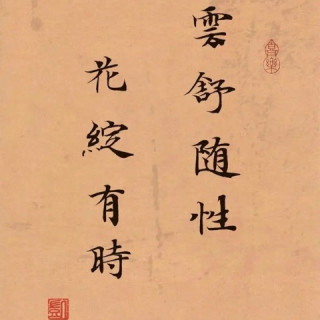 雲舒随性
花綻有時